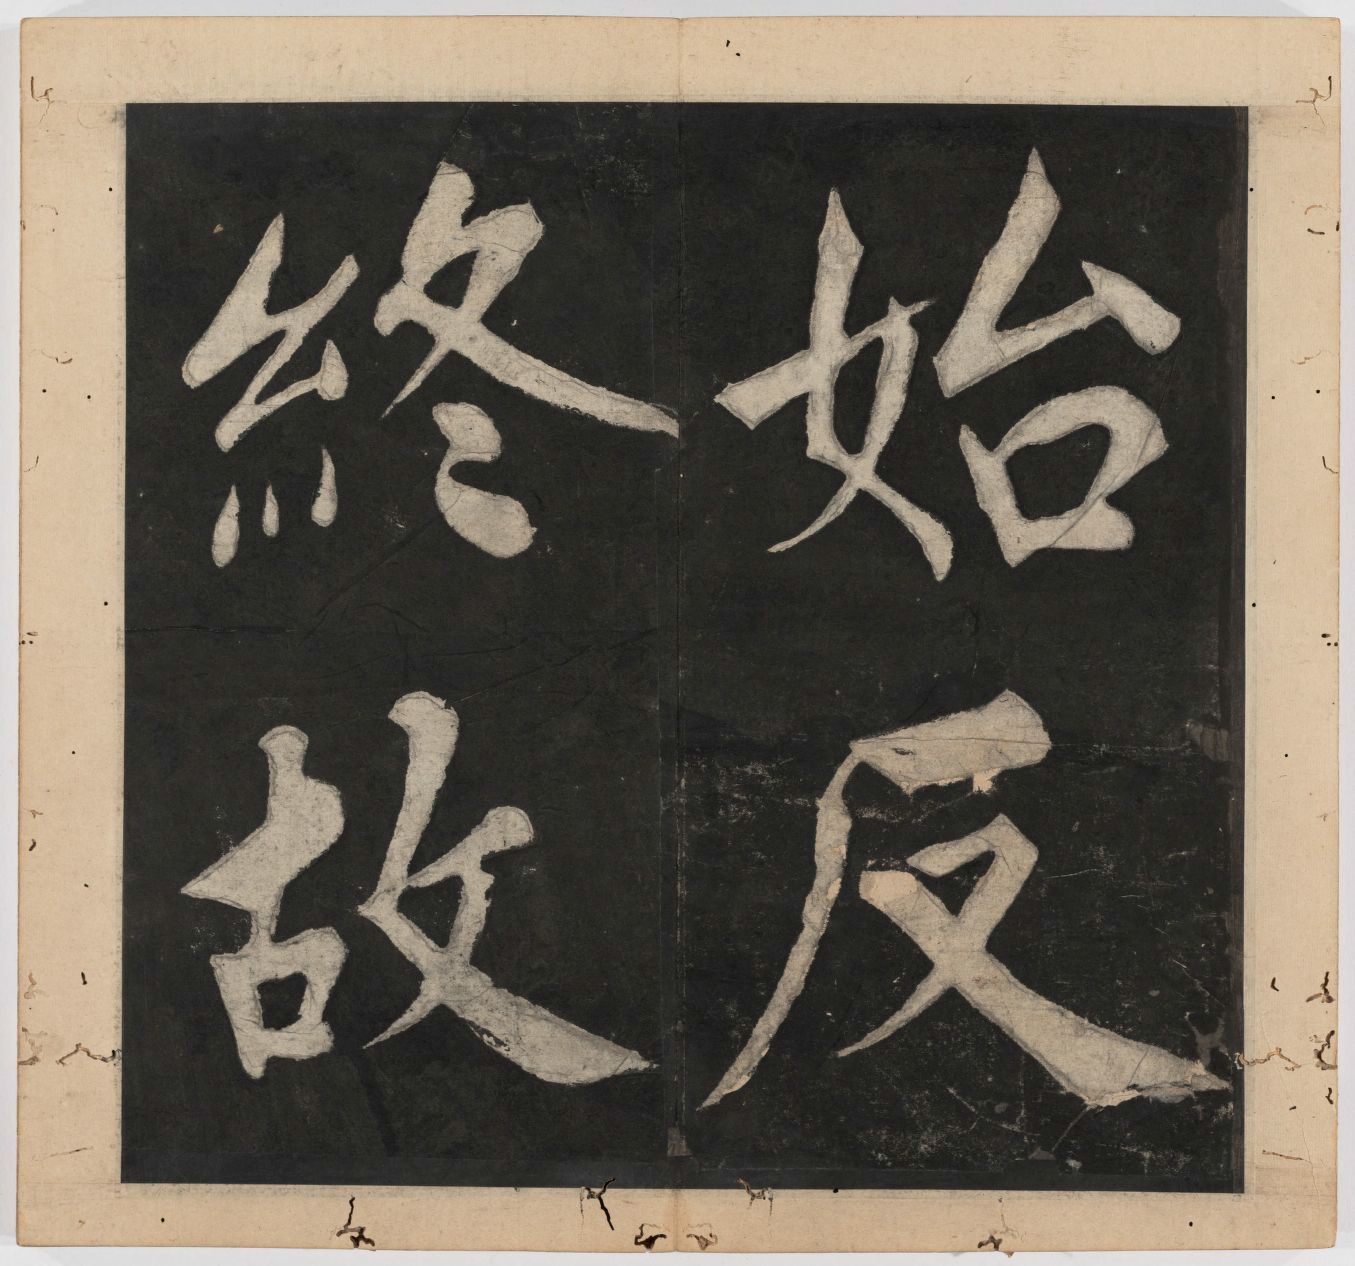 始反
終故